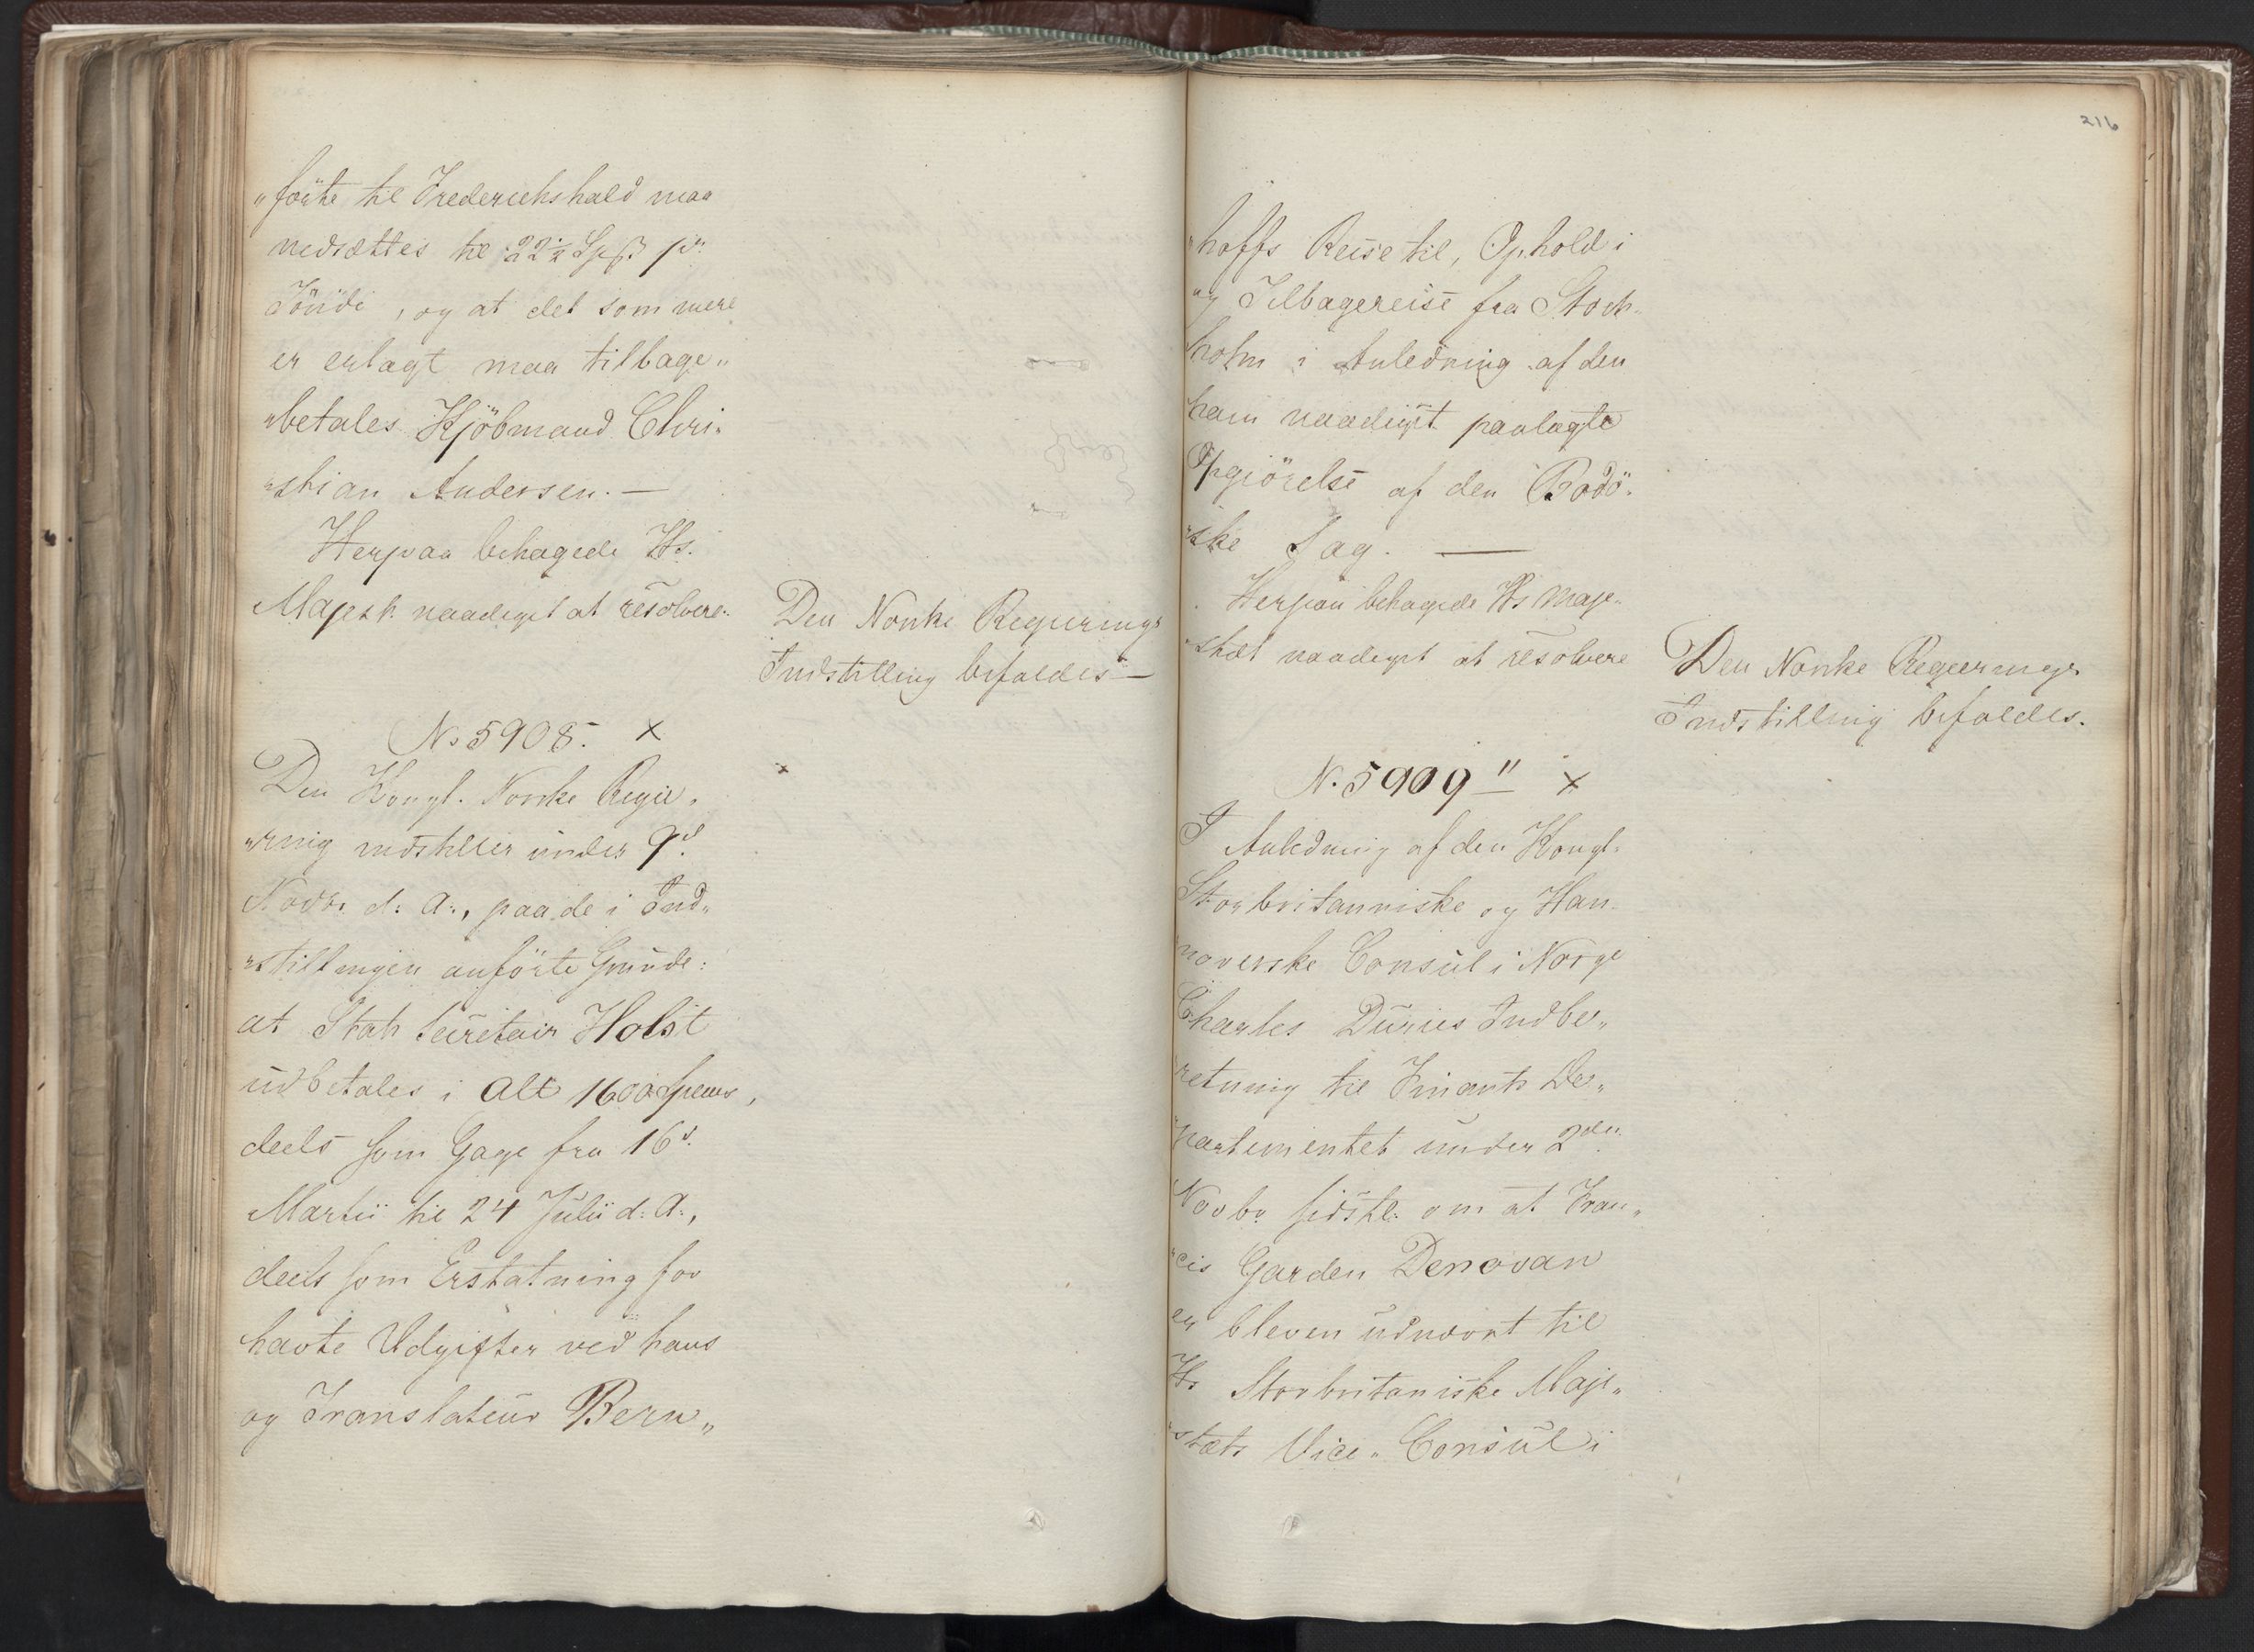 „förte til Frederichshald maa
nedsættes til 22½ Sp ß pr
Tönde, og at det som mere
er erlagt maa tilbage„
„betales Kjöbmand Chri„
„stian Andersen. —
Herpaa behagede Hs.
Majest. naadigst at resolvere:
Den Norske Regierings
Indstilling bifaldes —
No 5908. x
Den Kongl. Norske Regie„
„ring indstiller under 9d.
Novbr. d: A:, paa de i Ind„
„stillingen anförte Grunde:
at Stats Secretair Holst
udbetales i Alt 1600 Species,
deels som Gage fra 16d.
Martii til 24 Julii d: A:,
deels som Erstatning for
havte Udgifter ved hans
og Translateur Bern„
216
„hoffs Reise til, Ophold i
og Tilbagereise fra Stock„
„holm i Anledning af den
ham naadigst paalagte
Opgiörelse af den Bodö„
„ske Sag. —
Herpaa behagede Hs Maje„
„stæt naadigst at resolvere
Den Norske Regierings
Indstilling bifaldes.
N. 5909 " x
I Anledning af den Kongl.
Storbritanniske og Han„
„noverske Consul i Norge
Charles Duries Indbe„
„retning til Finants De„
„partementet under 2den
Novbr sidstl. om at Fran„
„cis Garden Denovan
er bleven udnævnt til
Hs Storbritaniske Maje„
„stæts Vice„Consul i